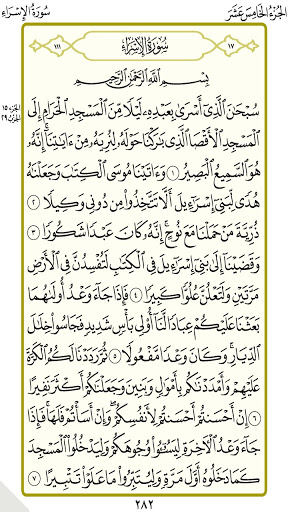 سُورَةُ الإِسْرَاءِ
الجُزْءُ الخَامِسَ عَشَرَ
الجزء ١٥
الحزب ٢٩
١١١ سُورَةُ الإِسْرَاءِ ١٧
بِسْمِ ٱللَّهِ ٱلرَّحْمَٰنِ ٱلرَّحِيمِ
سُبْحَٰنَ ٱلَّذِىٓ أَسْرَىٰ بِعَبْدِهِۦ لَيْلًا مِّنَ ٱلْمَسْجِدِ ٱلْحَرَامِ إِلَى
ٱلْمَسْجِدِ ٱلْأَقْصَا ٱلَّذِى بَٰرَكْنَا حَوْلَهُۥ لِنُرِيَهُۥ مِنْ ءَايَٰتِنَآ إِنَّهُۥ
هُوَ ٱلسَّمِيعُ ٱلْبَصِيرُ ١ وَءَاتَيْنَا مُوسَى ٱلْكِتَٰبَ وَجَعَلْنَٰهُ
هُدًى لِّبَنِىٓ إِسْرَٰٓءِيلَ أَلَّا تَتَّخِذُوا۟ مِن دُونِى وَكِيلًا ٢
ذُرِّيَّةَ مَنْ حَمَلْنَا مَعَ نُوحٍ إِنَّهُۥ كَانَ عَبْدًا شَكُورًا ٣
وَقَضَيْنَآ إِلَىٰ بَنِىٓ إِسْرَٰٓءِيلَ فِى ٱلْكِتَٰبِ لَتُفْسِدُنَّ فِى ٱلْأَرْضِ
مَرَّتَيْنِ وَلَتَعْلُنَّ عُلُوًّا كَبِيرًا ٤ فَإِذَا جَآءَ وَعْدُ أُولَىٰهُمَا
بَعَثْنَا عَلَيْكُمْ عِبَادًا لَّنَآ أُو۟لِى بَأْسٍ شَدِيدٍ فَجَاسُوا۟ خِلَٰلَ
ٱلدِّيَارِ وَكَانَ وَعْدًا مَّفْعُولًا ٥ ثُمَّ رَدَدْنَا لَكُمُ ٱلْكَرَّةَ
عَلَيْهِمْ وَأَمْدَدْنَٰكُم بِأَمْوَٰلٍ وَبَنِينَ وَجَعَلْنَٰكُمْ أَكْثَرَ نَفِيرًا
٦ إِنْ أَحْسَنتُمْ أَحْسَنتُمْ لِأَنفُسِكُمْ وَإِنْ أَسَأْتُمْ فَلَهَا فَإِذَا
جَآءَ وَعْدُ ٱلْءَاخِرَةِ لِيَسُۥٓـُٔوا۟ وُجُوهَكُمْ وَلِيَدْخُلُوا۟ ٱلْمَسْجِدَ
كَمَا دَخَلُوهُ أَوَّلَ مَرَّةٍ وَلِيُتَبِّرُوا۟ مَا عَلَوْا۟ تَتْبِيرًا ٧
٢٨٢